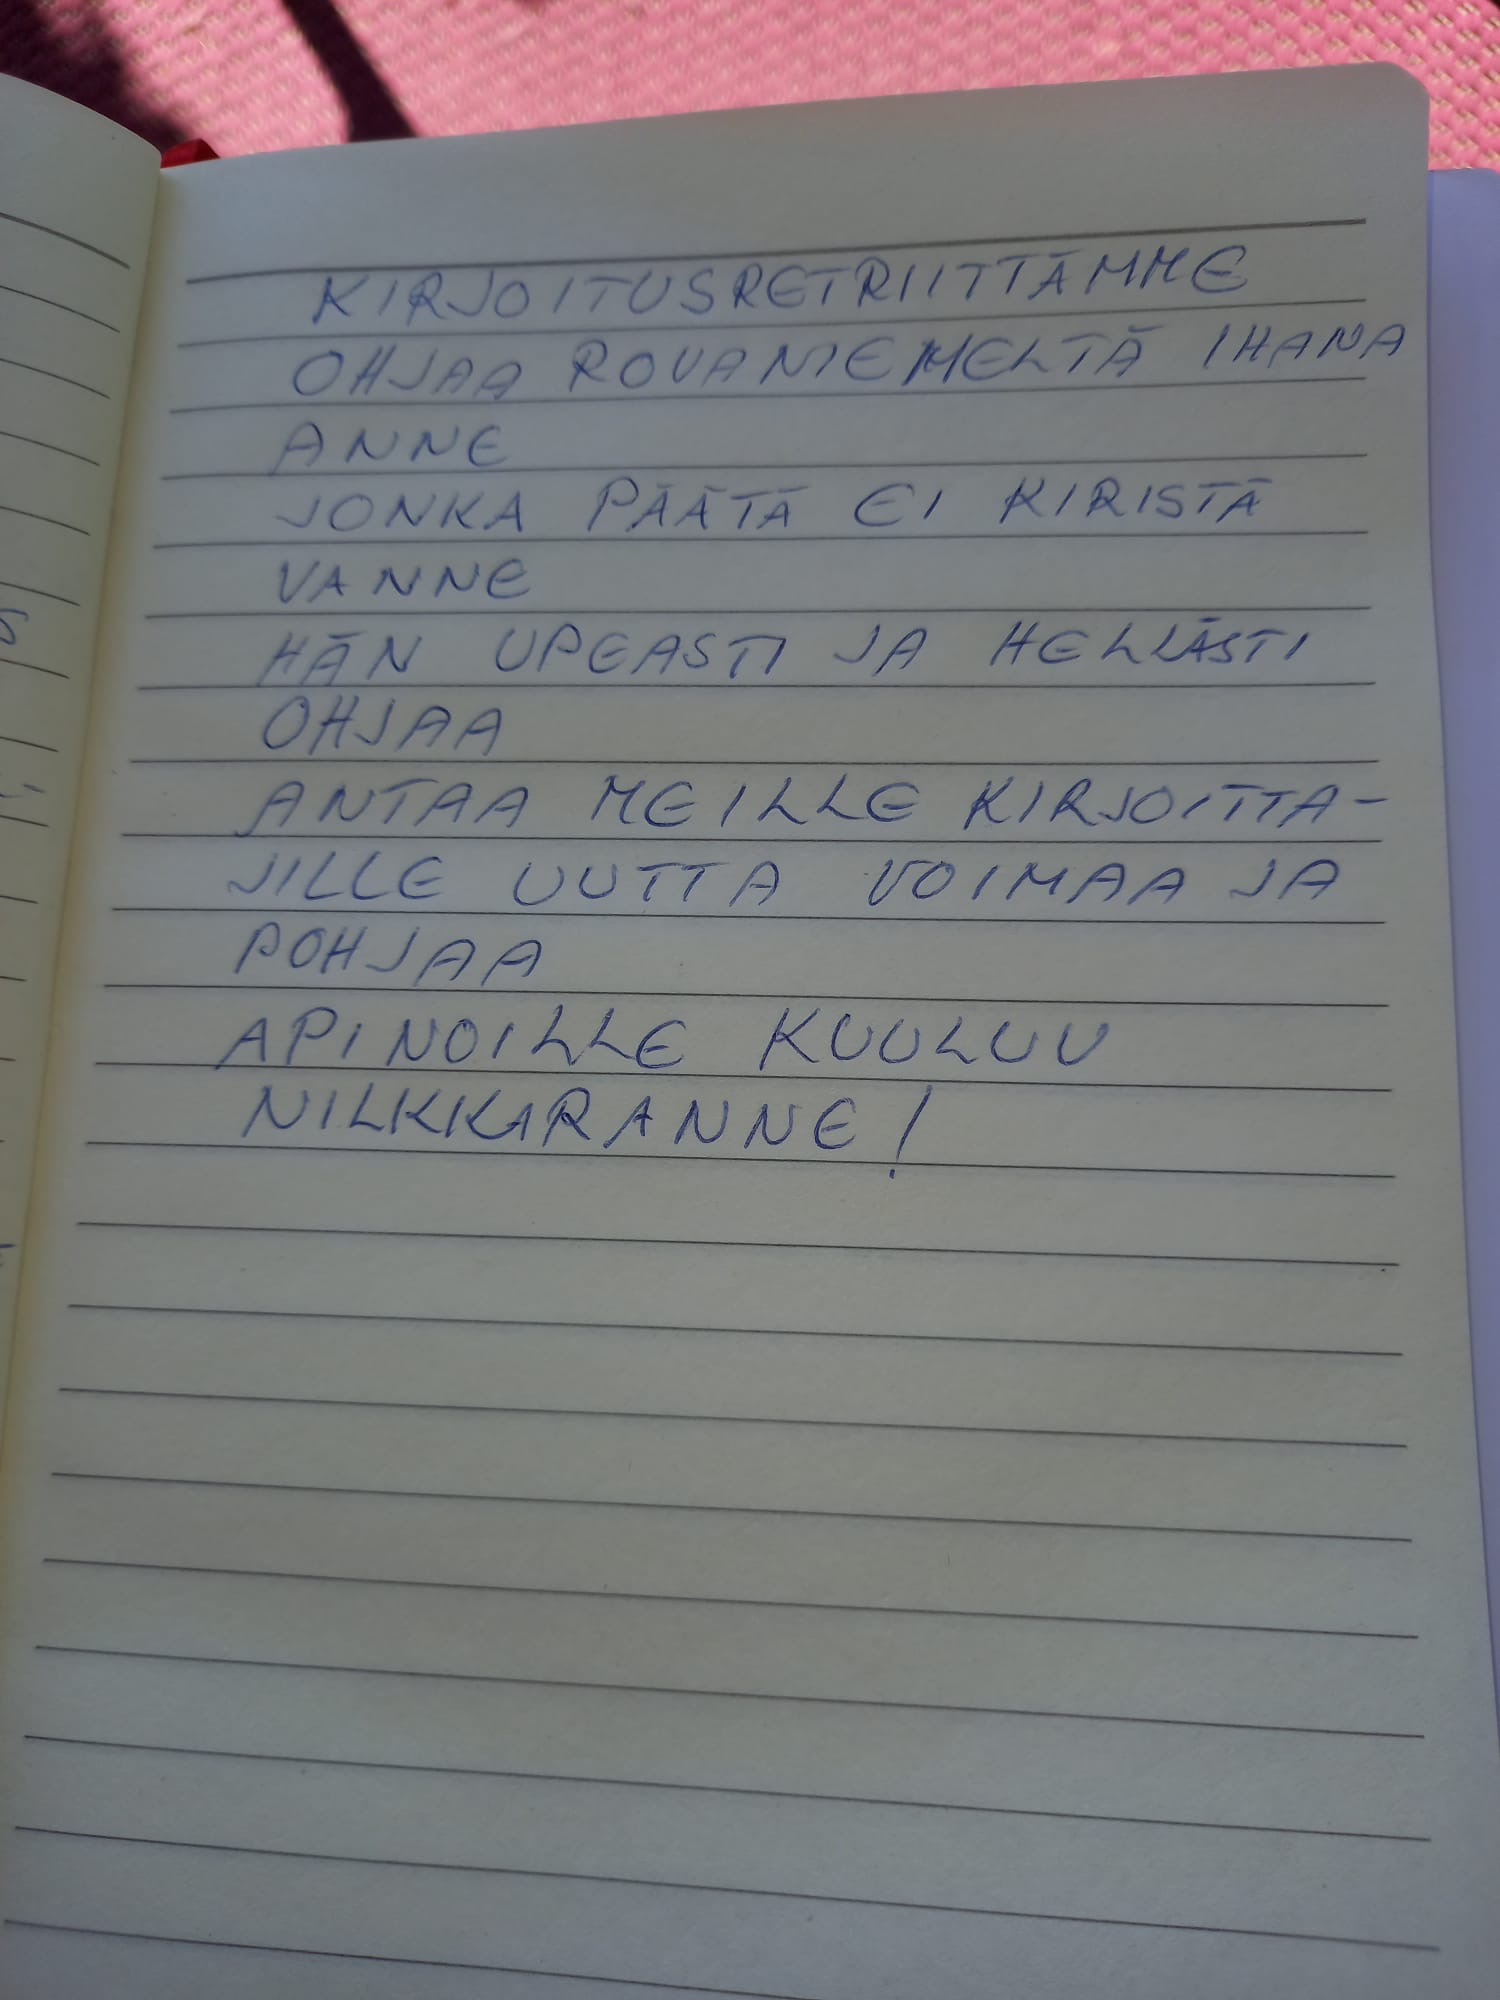 KIRJOITUSRETRIITTÄMME
OHJAA ROVANIEMELTÄ IHANA
ANNE
JONKA PÄÄTÄ EI KIRISTÄ
VANNE
HÄN UPEASTI JA HELLÄSTI
OHJAA
ANTAA MEILLE KIRJOITTA-
JILLE UUTTA VOIMAA JA
POHJAA
APINOILLE KUULUU
NILKKARANNE!